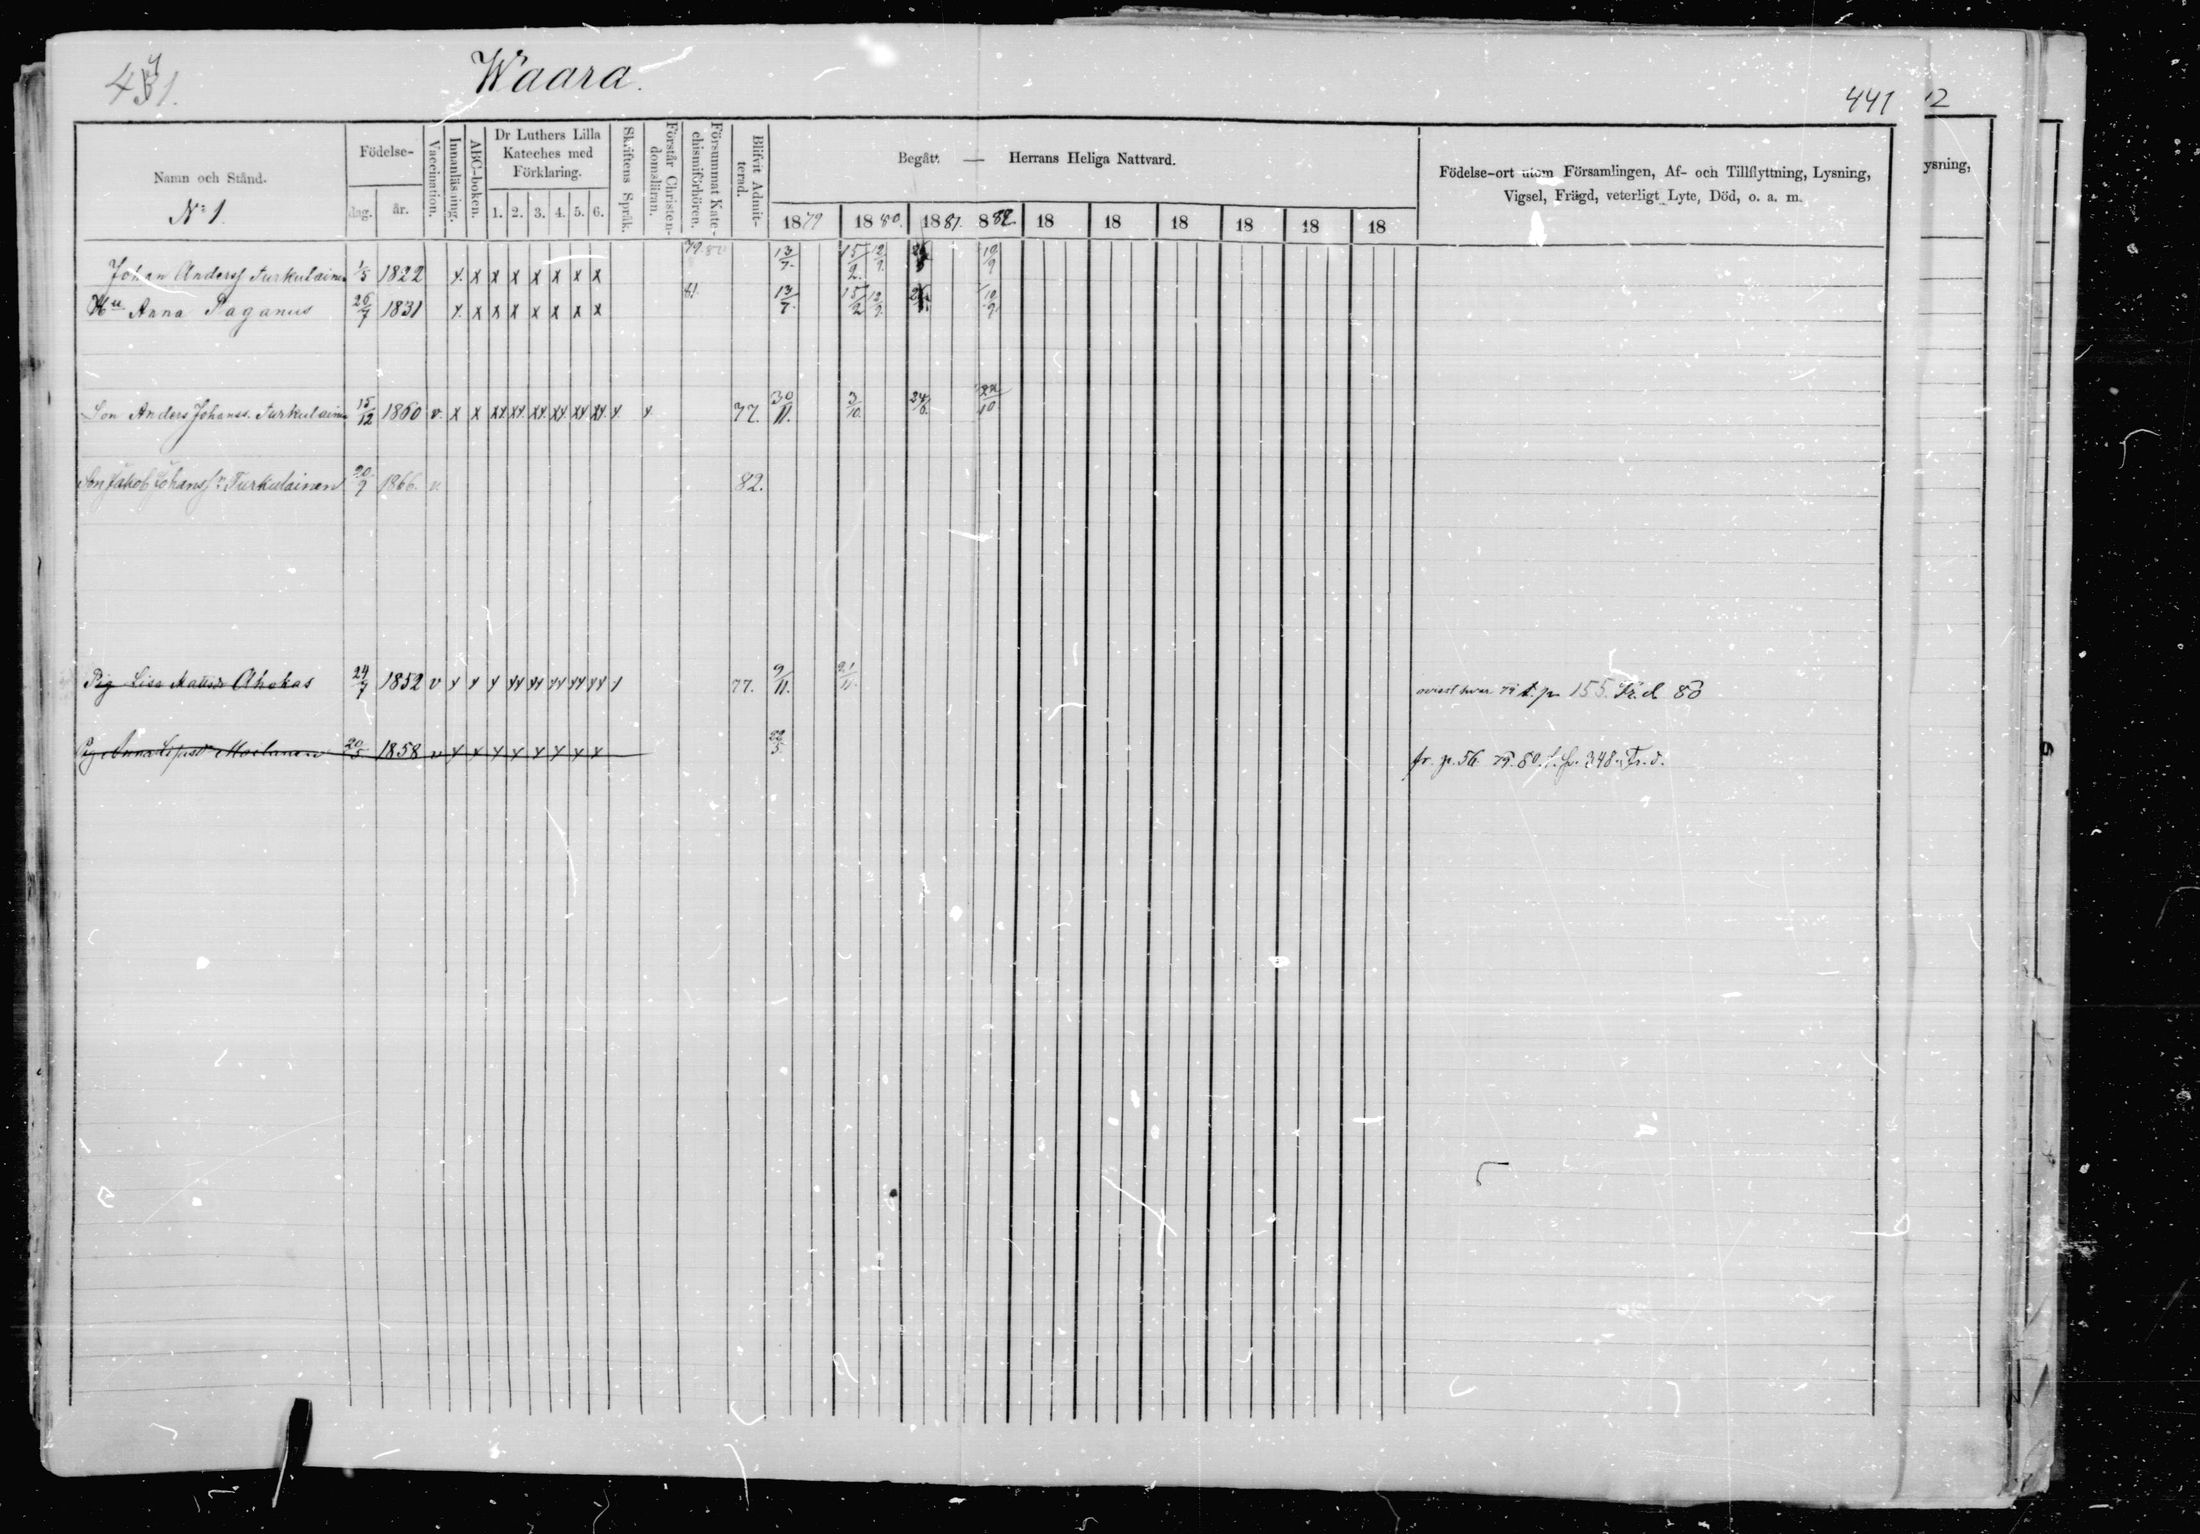 441.
Waara.
441
12
Namn och Stånd.
Nº 1.
Födelse-
dag.
år.
Vaccination.
Innanläsning.
ABC-boken.
Dr Luthers Lilla
Kateches med
Förklaring.
1. 2. 3. 4. 5. 6.
Skriftens Språk.
Förstår Christen-
domsläran.
Försummat Kate-
chismiförhören.
Blifvit Admit-
terad.
Begått — Herrans Heliga Nattvard.
1879 1880. 1881. 882 18 18 18 18 18 18
Födelse-ort utom Församlingen, Af- och Tillflyttning, Lysning,
Vigsel, Frägd, veterligt Lyte, Död, o. a. m.
ysning,
Johan Anderss Turkulainen 1/3 1822 x x x x x x x x 79. 80 13/7. 15/2. 12/9. 10/9
Hu Anna Paganus 26/7 1831 x x x x x x x x 81. 13/7. 15/2 12/9. 10/9
Son Anders Johanss. Turkulainen 15/12 1860 v. x x xx xx xx xx xx xx x x 77. 30/11. 3/10. 24/6. 22/10
Son Jakob Johanss. Turkulainen 20/9 1866. v. 82.
Pig Lisa Ahokas 24/7 1852 v x x x xx xx xx xx xx 1 77. 9/11. 21/11. 79 t. p. 155. Fr. d 80
Pig Anna 20/5 1858 v x x x x x x x x 22/5. fr. p. 56. 79. 80. t. p. 348. Fr. d.